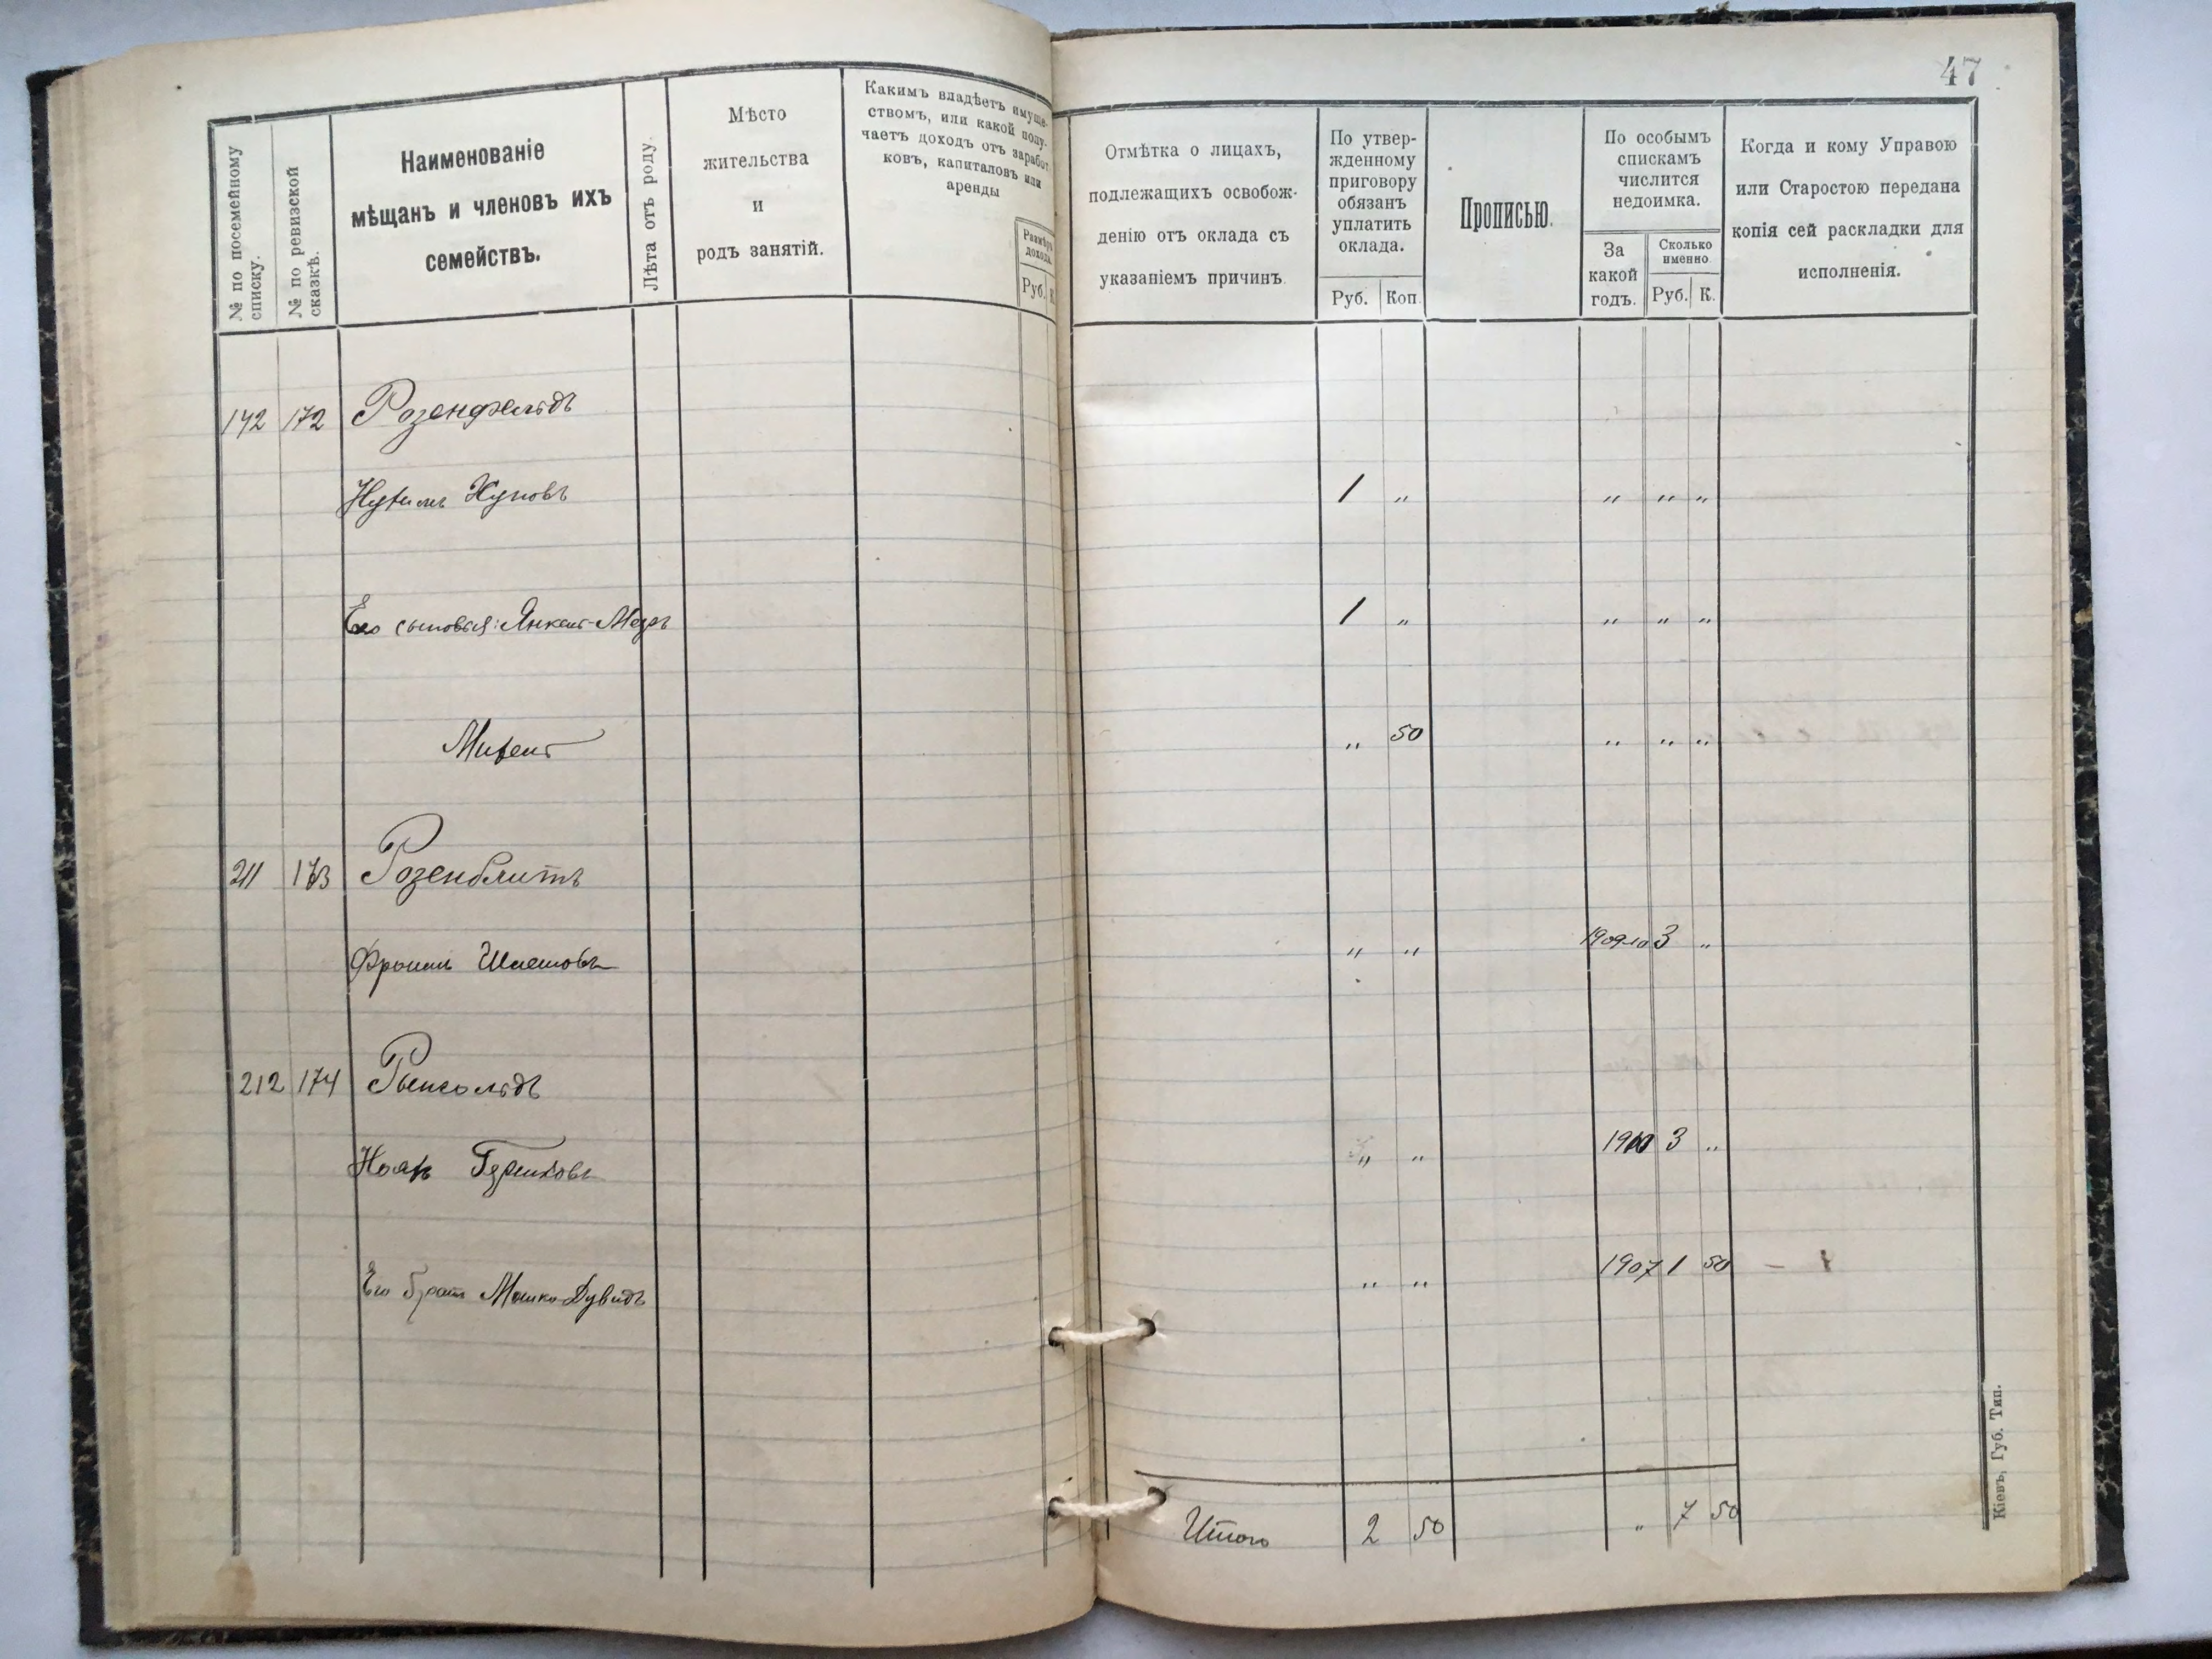 47
№ по посемейному
списку.
№ по ревизской
сказкѣ.
Наименованіе
мѣщанъ и членовъ ихъ
семействъ.
Лѣта отъ роду.
Мѣсто
жительства
и
родъ занятій.
Какимъ владѣетъ имуще-
ствомъ, или какой полу-
чаетъ доходъ отъ заработ-
ковъ, капиталовъ или
аренды
Размѣръ
дохода.
Руб. К.
Отмѣтка о лицахъ,
подлежащихъ освобож-
денію отъ оклада съ
указаніемъ причинъ.
По утвер-
жденному
приговору
обязанъ
уплатить
оклада.
Руб. Коп.
Прописью.
По особымъ
спискамъ
числится
недоимка.
За
какой
годъ.
Сколько
именно.
Руб. К.
Когда и кому Управою
или Старостою передана
копія сей раскладки для
исполненія.
142 172 Розенфельдъ
1 „ „ „ „
Его сыновья: Янкель- 1 „ „ „ „
„ 50 „ „ „
211 173 Розенблитъ
Фроим „ „ 1909-10 3 „
212 174
„ „ 1910 3 „
Его братъ Мошко-Дувидъ „ „ 1907 1 50
Итого 2 50 „ 7 50
Кіевъ, Губ. Тип.